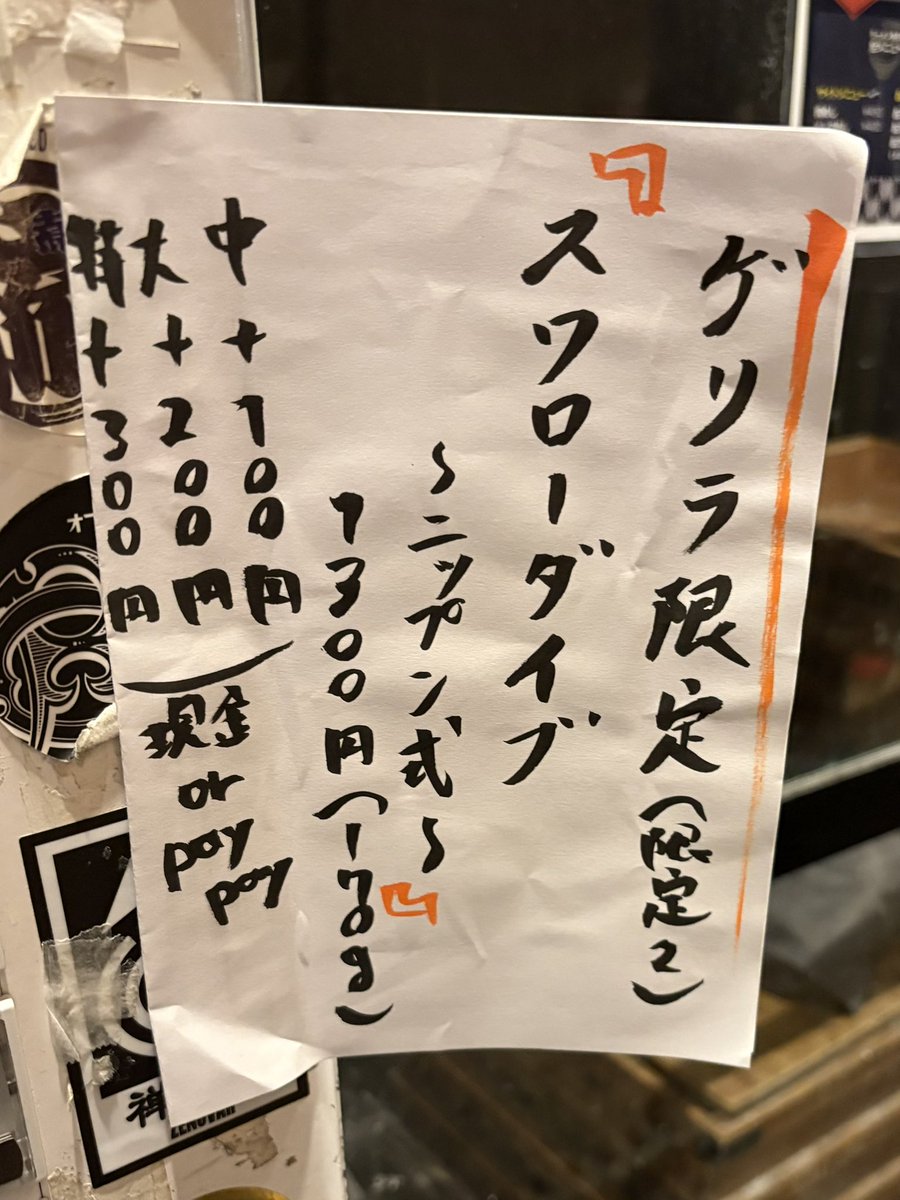 ゲリラ限定(限定2)
『スワローダイブ
〜ニップン式〜』
1300円(170g)
中+100円
大+200円
特+300円
現金
or
pay
pay